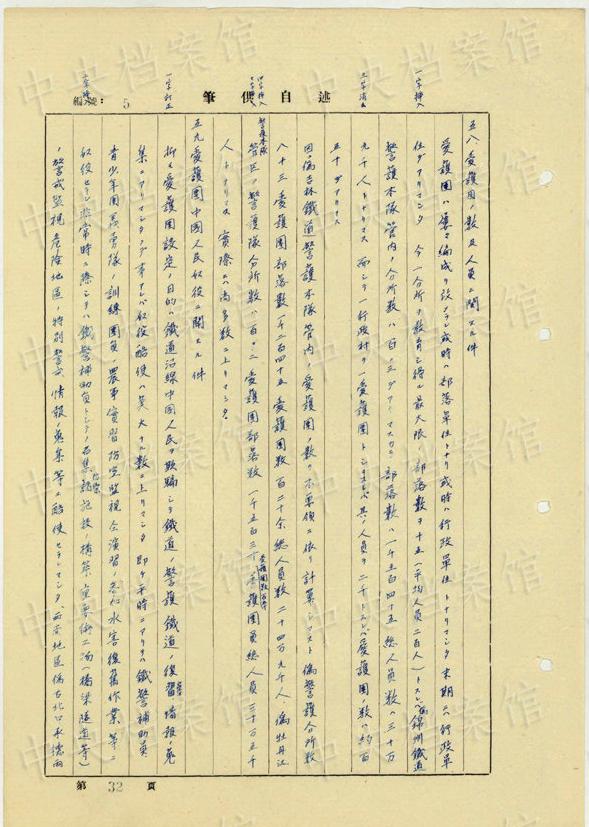 筆供自述
編號: 5
一字挿入
三字消ス
一字訂正
五八、愛護団ノ数及人員ニ関スル件
愛護團ハ屡々編成ヲ改メラレ或時ハ部落單位トナリ或時ハ行政單位トナリマシタ 末期ニハ行政單
位デアリマシタ 今一分所ノ教育シ得ル最大限ノ部落数ヲ十五(平均人員二百人)トスレバ 錦州鐵道
警護本隊管内ノ分所数ハ百〇三デアリマスカラ部落数ハ一千五百四十五 総人員数ハ三十万
九千人トナリマス 而シテ一行政村ヲ一愛護團トシ其ノ人員ヲ二千トスレバ愛護團数ハ約百
五十デアリマス
因ニ偽吉林鐵道警護本隊管内ノ愛護團ノ数ヲ本單價ニ依リ計算シマスト 偽警護分所数
八十三 愛護團部落数一千二百四十五 愛護團数百二十余 総人員数二十四万九千人、偽牡丹江
警護本隊
管区ノ警護隊分所数ハ百〇二 愛護團部落数 一千五百三十 愛護團員総人員三十万六千
人トナリマス 実際ニハ尚多数ニ上リマシタ
五九、愛護團中國人民奴役ニ関スル件
抑モ愛護團設定ノ目的ハ鐵道沿線中國人民ヲ欺瞞シテ鐵道ノ警護鐵道ノ復舊情報ノ蒐
集ニアリマシタノデ事アレバ奴役酷使ハ莫大ナル数ニ上リマシタ 即チ平時ニアリテハ鐵警補助員
青少年團義勇隊ノ訓練團員ノ農事實習防空監視全演習ノ参加水害復舊作業等ニ
奴役セラレ非常時ニ際シテハ鐵警補助員トシテノ召集 諸施設ノ構築、重要術工物(橋梁隧道等)
ノ警戒監視危險地區ノ特別警戒 情報ノ蒐集等ニ酷使セラレマシタ、西南地區偽古北口承德両
第 32 頁